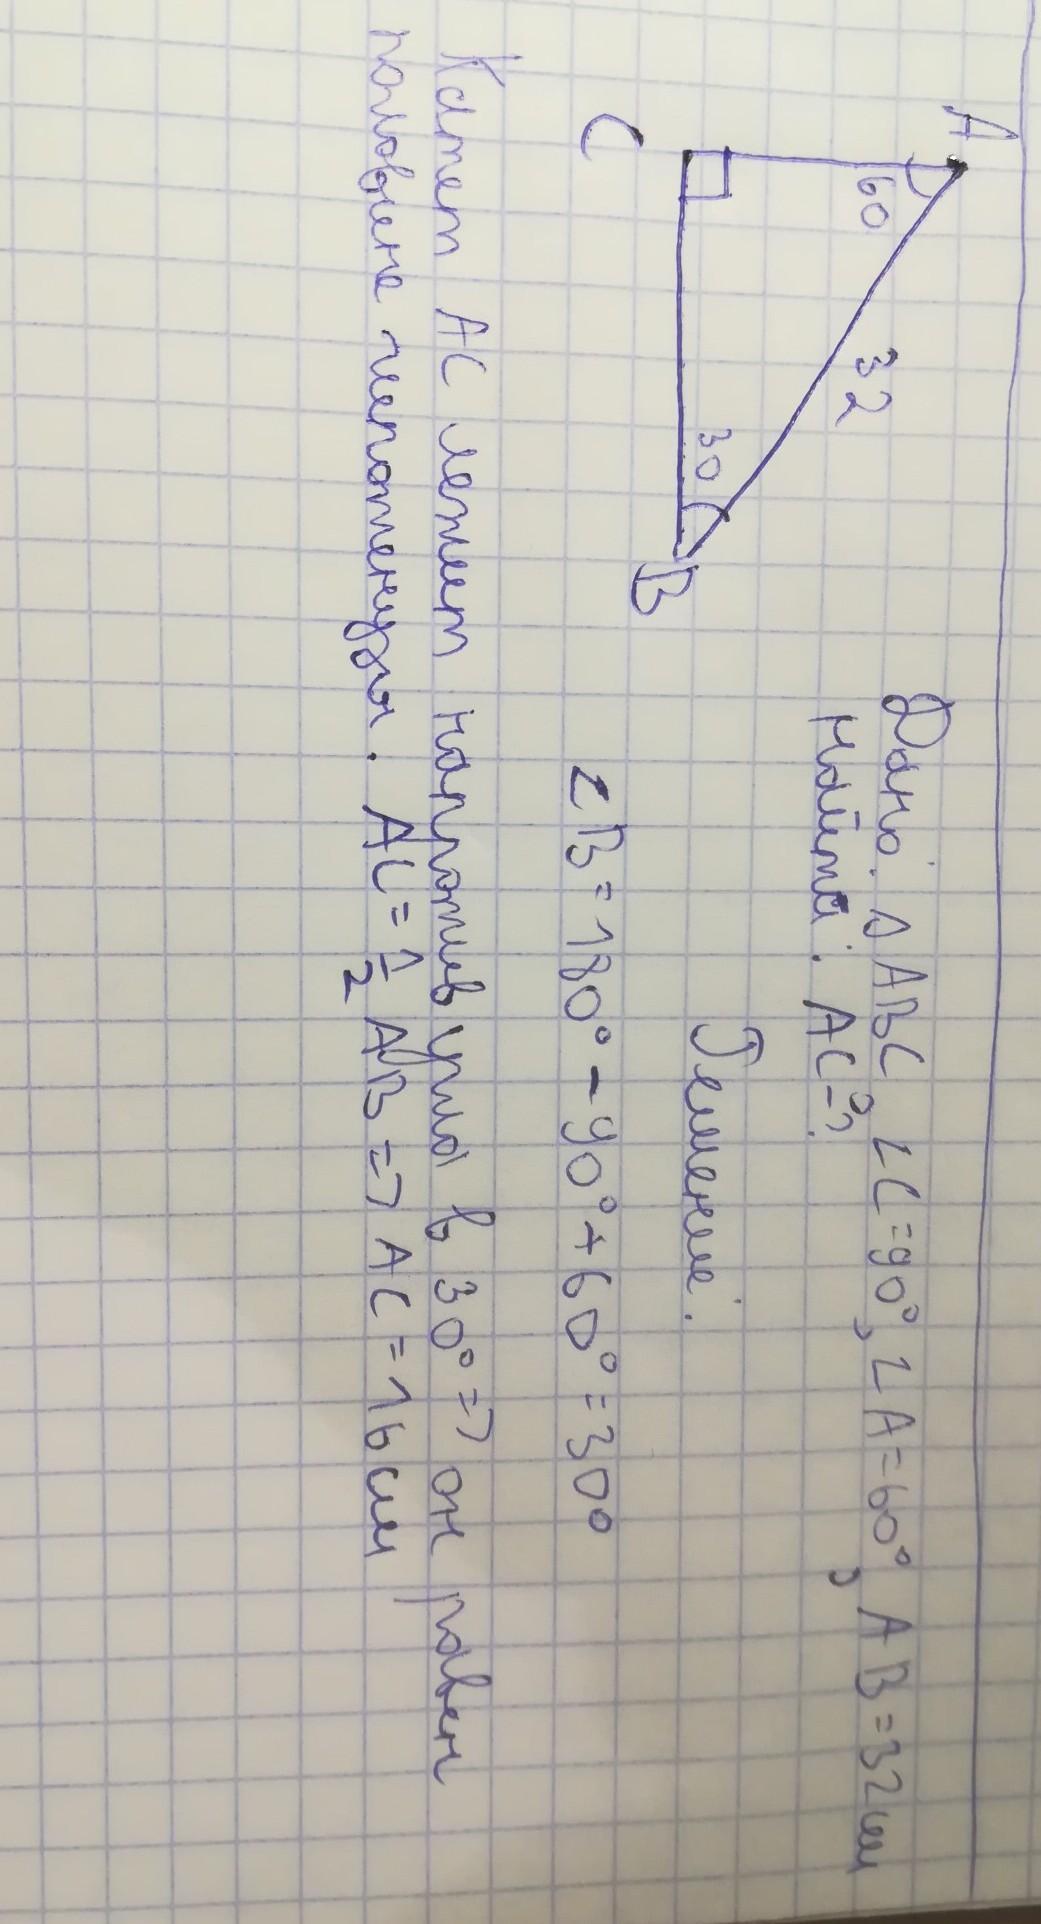 A
60
32
30
C
B
Дано: △ABC ∠C=90°, ∠A=60°, AB=32см
Найти: AC-?
Решение:
∠B=180°-90°+60°=30°
Катет AC лежит напротив угла в 30° => он равен
половине гипотенузы. AC=1/2 AB => AC=16см